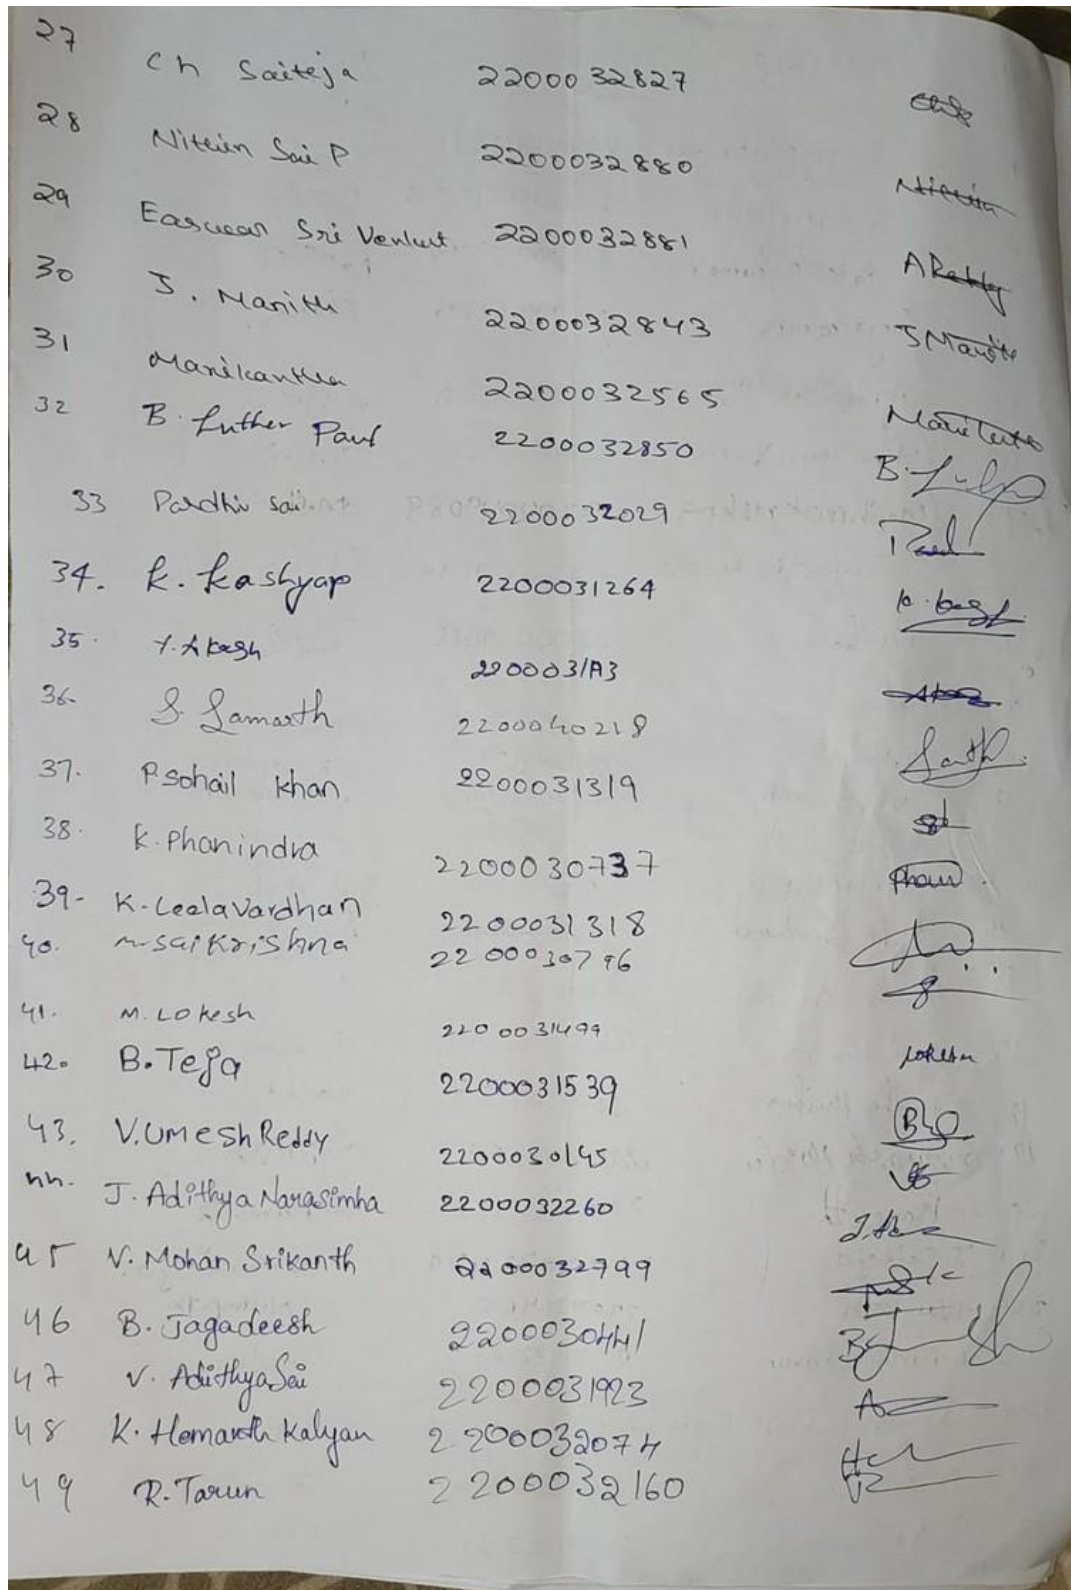 27 Ch Saiteja 2200032827
28 Nithin Sai P 2200032880 Nithin
29 Easwar Sri Venkat 2200032881 A Reddy
30 J. Manith 2200032843 J Manith
31 Manikantha 2200032565
32 B. Luther Paul 2200032850
33 Pardhu Sai 2200032029
34. K. Kashyap 2200031264
35. Y. Akash 2200031A3
36. S. Samarth 2200040218
37. P. Sohail Khan 2200031319
38. K. Phanindra 2200030737
39- K. Leela Vardhan 2200031318
40. M. Sai Krishna 2200030796
41. M. Lokesh 2200031499 Lokesh
42. B. Teja 2200031539
43. V. Umesh Reddy 2200030145
44. J. Adithya Narasimha 2200032260
45 V. Mohan Srikanth 2200032799
46 B. Jagadeesh 2200030441
47 V. Adithya Sai 2200031923
48 K. Hemanth Kalyan 2200032074
49 R. Tarun 2200032160